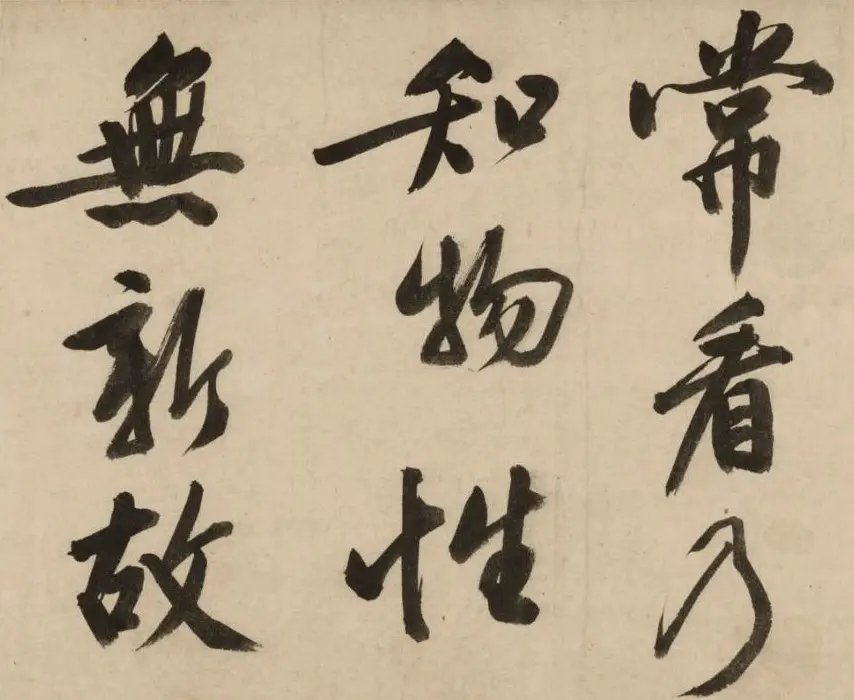 常看乃
知物性
無新故